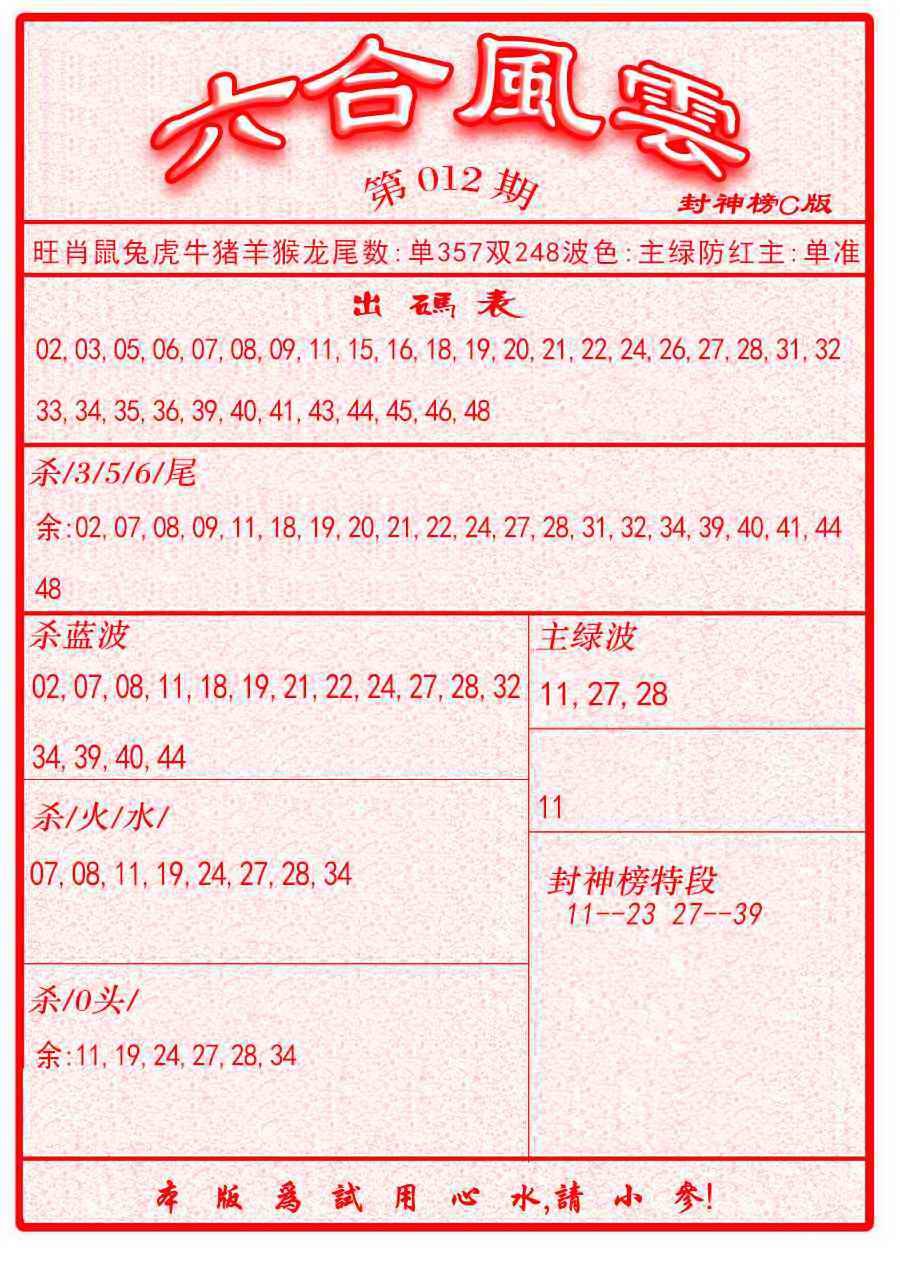 六合風雲
第012期
封神榜C版
旺肖鼠兔虎牛猪羊猴龙尾数:单357双248波色:主绿防红主:单准
出碼表
02,03,05,06,07,08,09,11,15,16,18,19,20,21,22,24,26,27,28,31,32
33,34,35,36,39,40,41,43,44,45,46,48
杀/3/5/6/尾
余:02,07,08,09,11,18,19,20,21,22,24,27,28,31,32,34,39,40,41,44
48
杀蓝波
02,07,08,11,18,19,21,22,24,27,28,32
34,39,40,44
主绿波
11,27,28
11
杀/火/水/
07,08,11,19,24,27,28,34
封神榜特段
11--23 27--39
杀/0头/
余:11,19,24,27,28,34
本版爲試用心水,請小參!